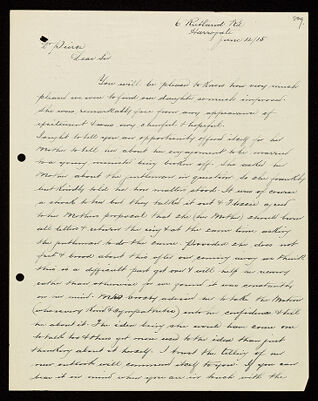 6 Rutland Rd
Harrogate
June 12/15
Dr Peirce
Dear Sir
You will be pleased to know how very much
pleased we were to find our daughter so much improved.
She was remarkably free from any appearance of
excitement & was very cheerful & hopeful.
I ought to tell you an opportunity offered itself for her
Mother to tell her about her engagement to be married
to a young minister being broken off. She asked her
Mother about the gentleman in question so she frankly
but kindly told her how matters stood. It was of course
a shock to her but they talked it out & Jessie agreed
to her Mothers proposal that she (her Mother) should burn
all letters & return the ring & at the same time asking
the gentleman to do the same. Provided she does not
fret & brood about this after our coming away we think
this is a difficult part got over & will help her recovery
rather than otherwise for we found it was constantly
on her mind. advised us to take the Matron
(who is very kind & sympathetic) into our confidence & tell
her about it. The idea being she would have some one
to talk to & thus get more used to the idea than just
thinking about it herself. I trust the telling of
our outlook will commend itself to you. If you can
bear it in mind when you are in touch with the